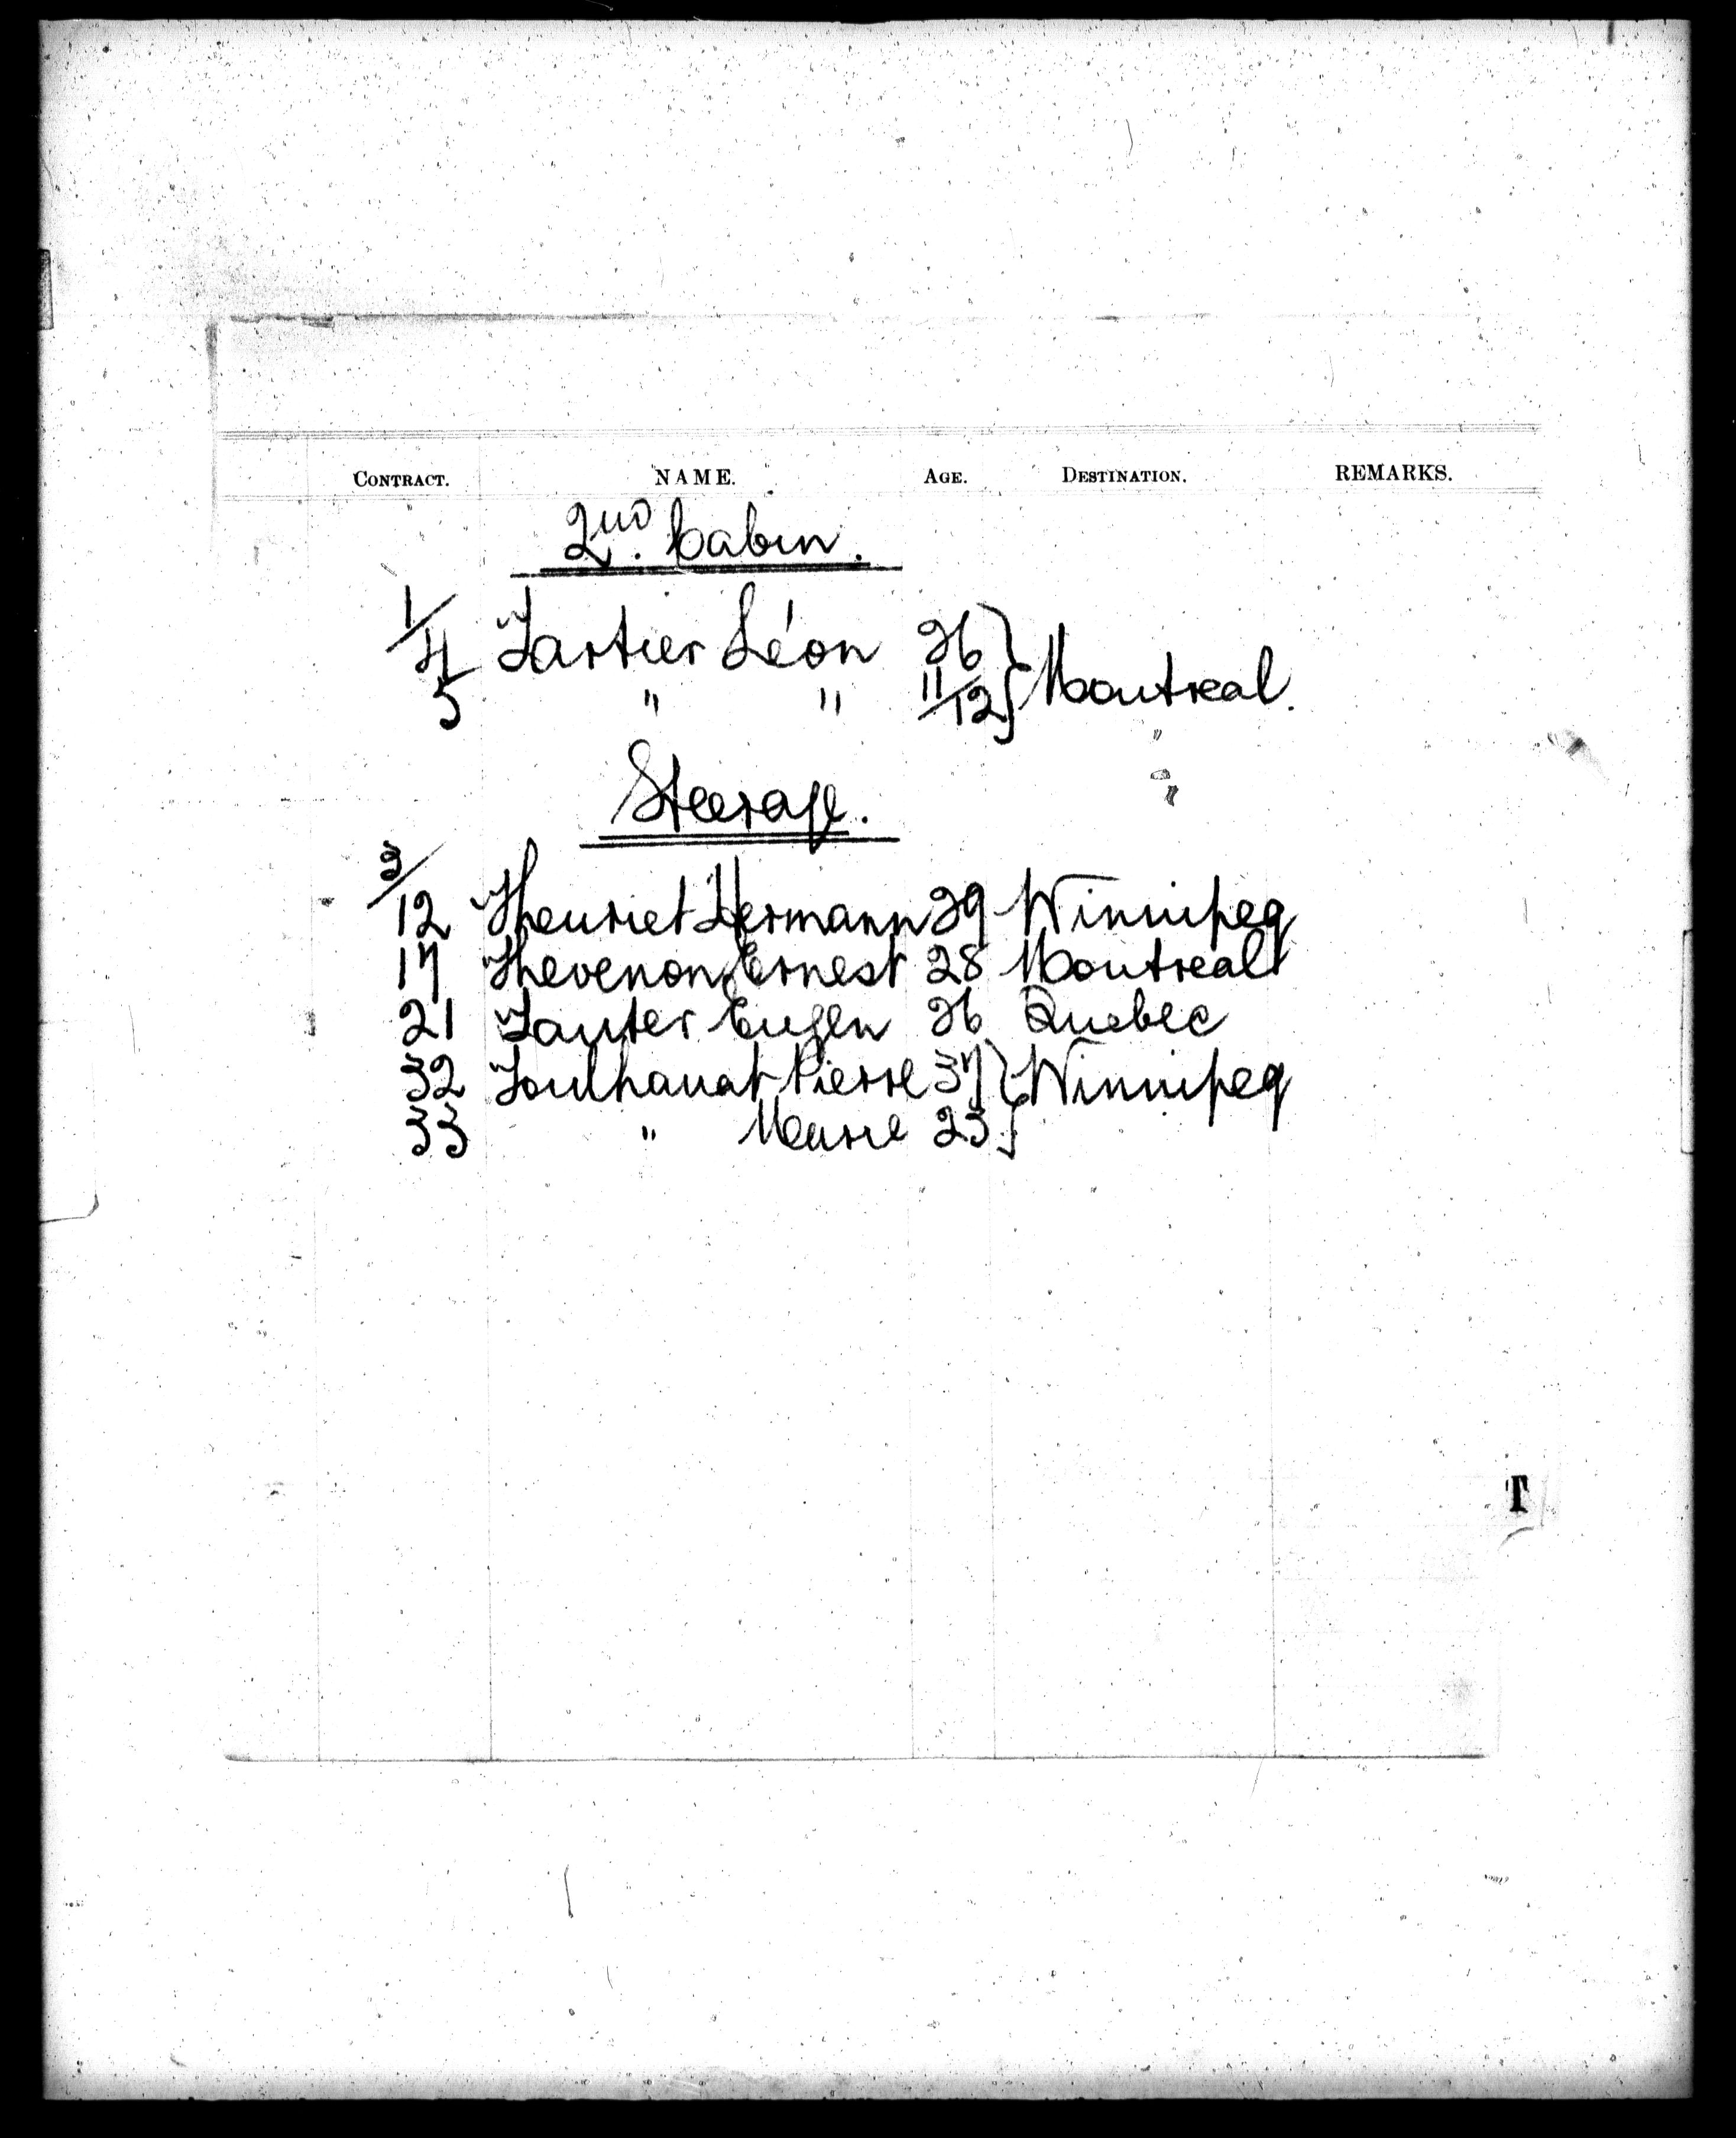 CONTRACT. NAME. AGE. DESTINATION. REMARKS.
2nd. Cabin.
1/4 Tartier Léon 26 } Montreal.
5 " " 11/12 }
Steerage.
3/12 Theuriet Hermann 29 Winnipeg
17 Thevenon Ernest 28 Montreal
21 Tauter Eugen 26 Quebec
32 Toulhauat Pierre 37 } Winnipeg
33 " Marie 23 }
T